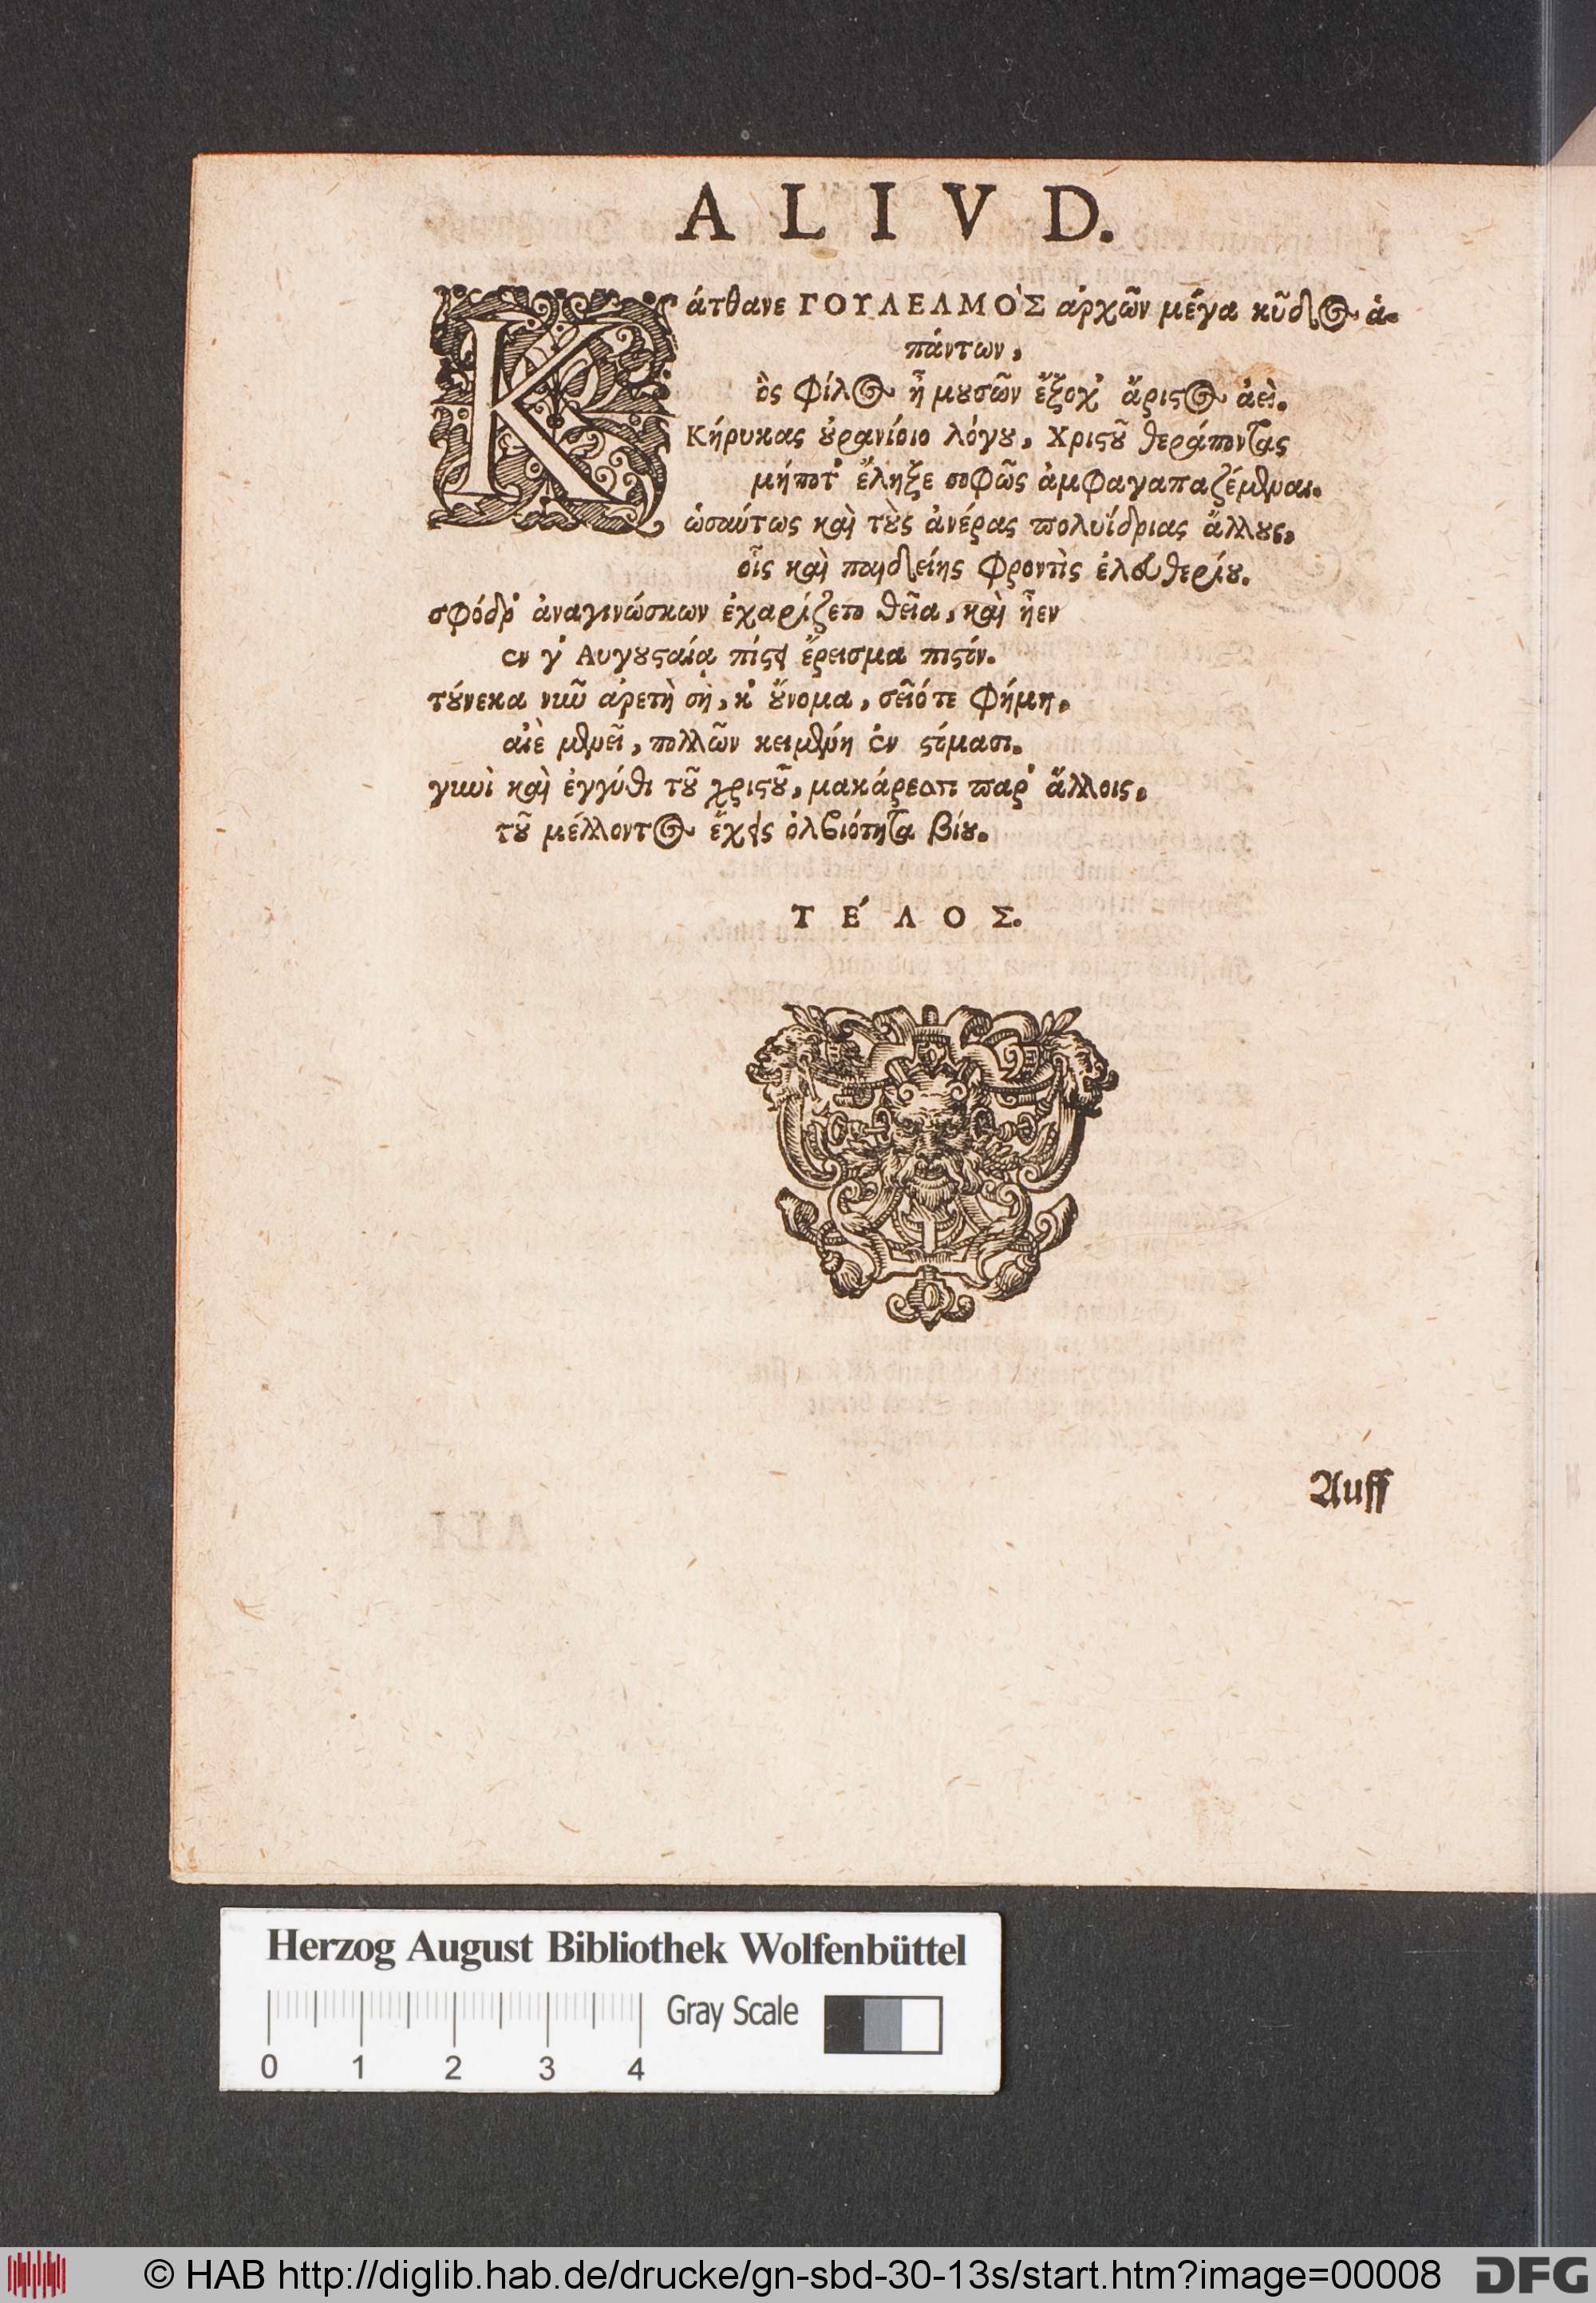 ALIVD.
Κάτθανε ΓΟΥΛΕΛΜΟ῾Σ ἀρχῶν μέγα κῦδος ἁ-
πάντων,
ὃς φίλος ἦ μουσῶν ἔξοχ' ἄριστος ἀεὶ.
Κήρυκας οὐρανίοιο λόγου, Χριστοῦ θεράποντας
μήποτ' ἔληξε σοφῶς ἀμφαγαπαζέμεναι.
ὡσαύτως καὶ τοὺς ἀνέρας πολυίδριας ἄλλους,
οἷς καὶ παιδείης φροντὶς ἐλευθερίου.
σφόδρ' ἀναγινώσκων ἐχαρίζετο θεῖα, καὶ ἦεν
ἐν γ' Αυγουσταίᾳ πίστει ἔρεισμα πιστὶν.
τούνεκα νιῦ ἀρετὴ σὴ, κ' οὔνομα, σεῖότε φήμη,
αἰὲ μενεῖ, πολλῶν κειμένη ἐν στόμασι.
γιωὶ καὶ ἐγγύθι τοῦ χριστοῦ, μακάρεσσι παρ' ἄλλοις,
τοῦ μέλλοντος ἔχεις ὀλβιότητα βίου.
ΤΕ´ΛΟΣ.
Auff
Herzog August Bibliothek Wolfenbüttel
Gray Scale
0 1 2 3 4
© HAB http://diglib.hab.de/drucke/gn-sbd-30-13s/start.htm?image=00008 DFG